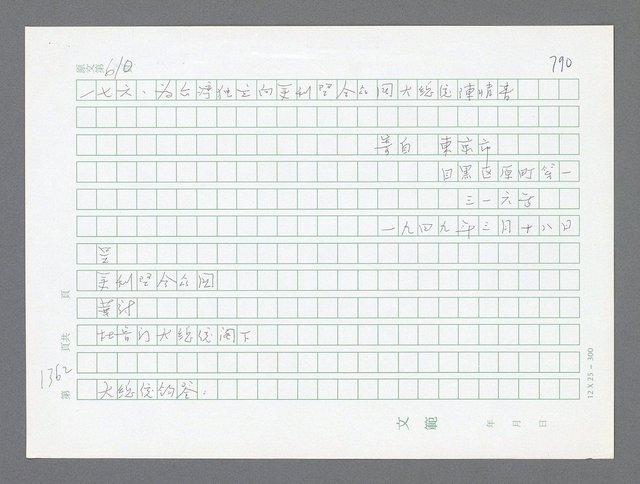 原文第61Q
790
一七六、為台灣独立向美利堅合众国大總統陳情書
寄自 東京市
目黑区原町
三一六号
一九四九年三月十八日
呈
美利堅合众国
華
杜音门大總統阁下
1362
大總統鈞鉴:
第 頁共 頁
文範
年 月 日
12 X 25 = 300